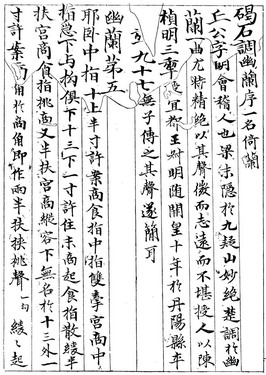 碣石調幽蘭序一名倚蘭
丘公字明會稽人也梁末隱於九疑山妙絕楚調於幽
蘭一曲尤特精絕以其聲微而志遠而不堪授人以陳
禎明三年授宜都王叔明隨開皇十年於丹陽縣卒
九十七無子傳之其聲遂簡耳
幽蘭第五
耶臥中指十上半寸許案商食指中指雙牽宮商中
指急下与拘俱下十三下一寸許住末商起食指散緩半
扶宮商食指挑商又半扶宮商縱容下無名於十三外一
寸許案商角於商角即作兩半扶挾挑聲一句 緩緩起